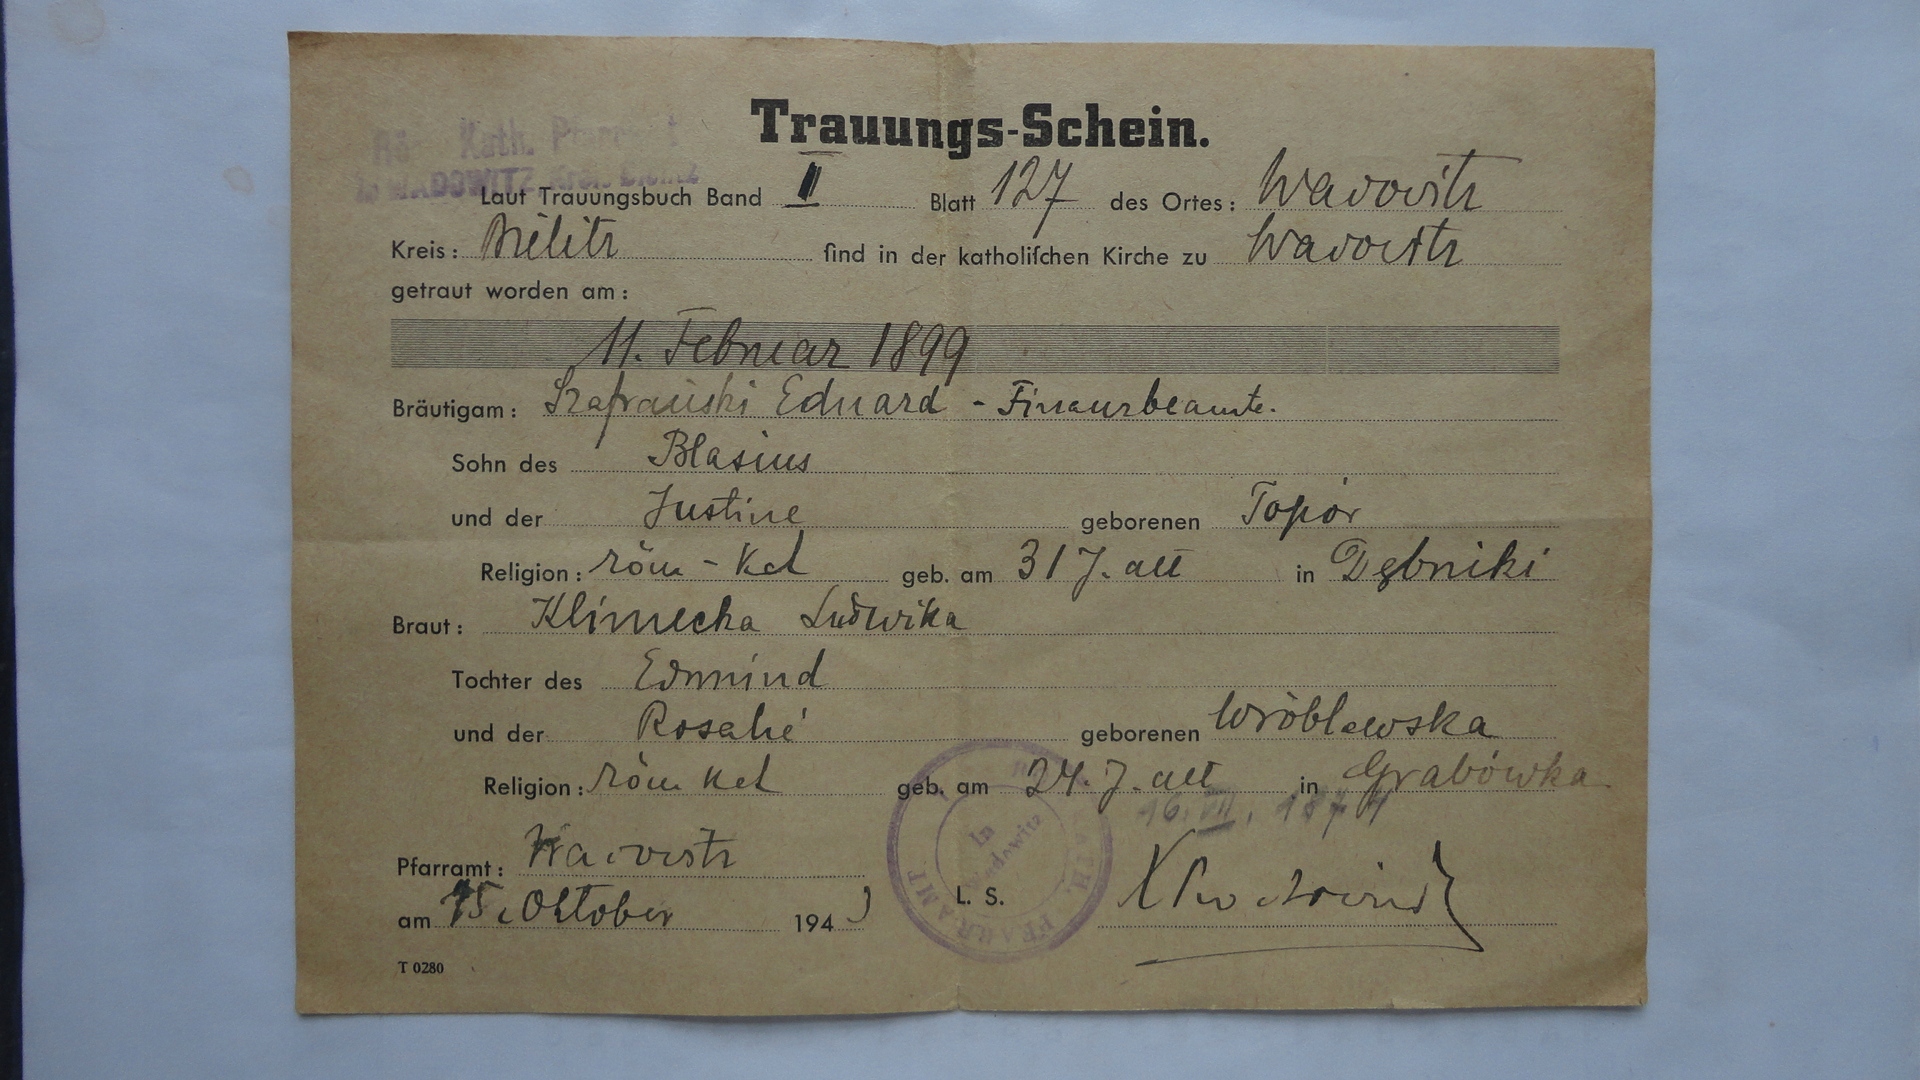 Trauungs-Schein.
Kath.
WADOWITZ, Kreis Bielitz
Laut Trauungsbuch Band II Blatt 127 des Ortes: Wadowitz
Kreis: Bielitz ſind in der katholiſchen Kirche zu Wadowitz
getraut worden am:
11. Februar 1899
Bräutigam: Szafrański Eduard - Finanzbeamte.
Sohn des Blasius
und der Justine geborenen Topór
Religion: röm - Kat geb. am 31 J. alt in Dębniki
Braut: Klimecka Ludwika
Tochter des Edmund
und der Rosalie geborenen Wróblewska
Religion: röm Kat geb. am 24. J. alt in Grabówka
16. VIII. 1874
Pfarramt: Wadowitz
am 15. Oktober 1943 L. S.
KATH. PFARRAMT
In Wadowitz
T 0280